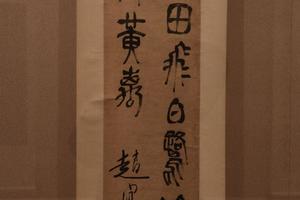 田飛白鷺
黃鸝
趙